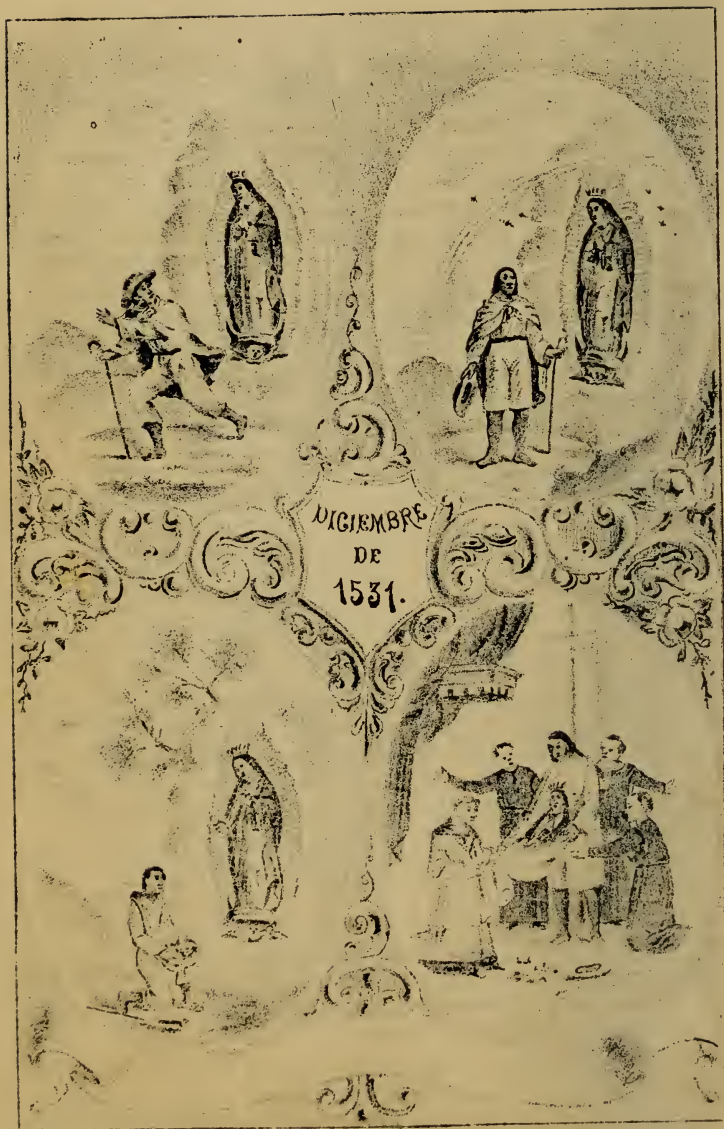 DICIEMBRE
DE
1531.